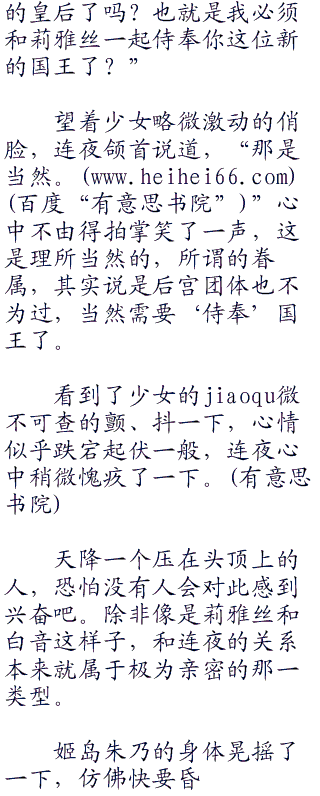 的皇后了吗？也就是我必须
和莉雅丝一起侍奉你这位新
的国王了？”
望着少女略微激动的俏
脸，连夜颌首说道，“那是
当然。(www.heihei66.com)
(百度“有意思书院”)”心
中不由得拍掌笑了一声，这
是理所当然的，所谓的眷
属，其实说是后宫团体也不
为过，当然需要‘侍奉’国
王了。
看到了少女的jiaoqu微
不可查的颤、抖一下，心情
似乎跌宕起伏一般，连夜心
中稍微愧疚了一下。(有意思
书院)
天降一个压在头顶上的
人，恐怕没有人会对此感到
兴奋吧。除非像是莉雅丝和
白音这样子，和连夜的关系
本来就属于极为亲密的那一
类型。
姬岛朱乃的身体晃摇了
一下，仿佛快要昏